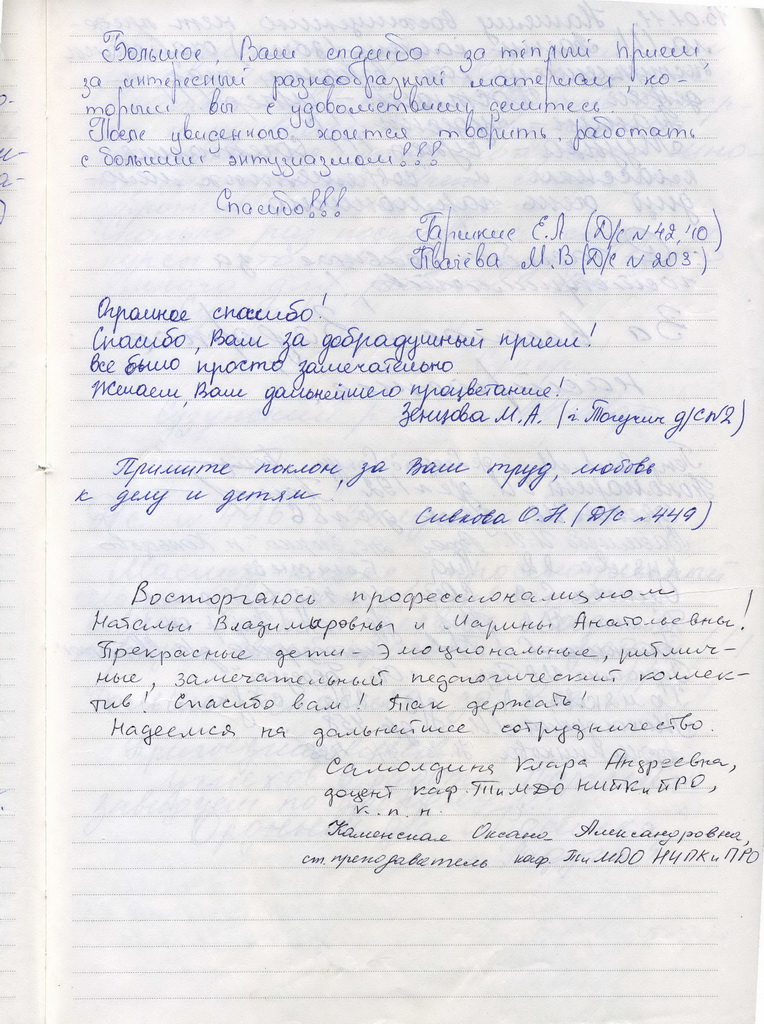 Большое, Вам спасибо за тёплый прием,
за интересный разнообразный материал, ко-
торым вы с удовольствием делитесь.
После увиденного хочется творить, работать
с большим энтузиазмом!!!
Спасибо!!!
Е.Л (Д/с №42,
М.В (Д/с №203)
Огромное спасибо!
Спасибо, Вам за добрадушный прием!
все было просто замечательно
Желаем, Вам дальнейшего процветания!
Зенцова М.А. (г. Тогучин д/с №2)
Примите поклон за Ваш труд, любовь
к делу и детям!
Сивкова О.Н. (Д/с №449)
Восторгаюсь профессионализмом
Натальи Владимировны и Марины Анатольевны!
Прекрасные дети - эмоциональные, ритмич-
ные, замечательный педагогический коллек-
тив! Спасибо вам! Так держать!
Надеемся на дальнейшее сотрудничество.
Клара Андреевна,
доцент каф. ТиМДО НИПКиПРО,
к.п.н.
Каменская Оксана Александровна,
ст. преподаватель каф. ТиМДО НИПКиПРО